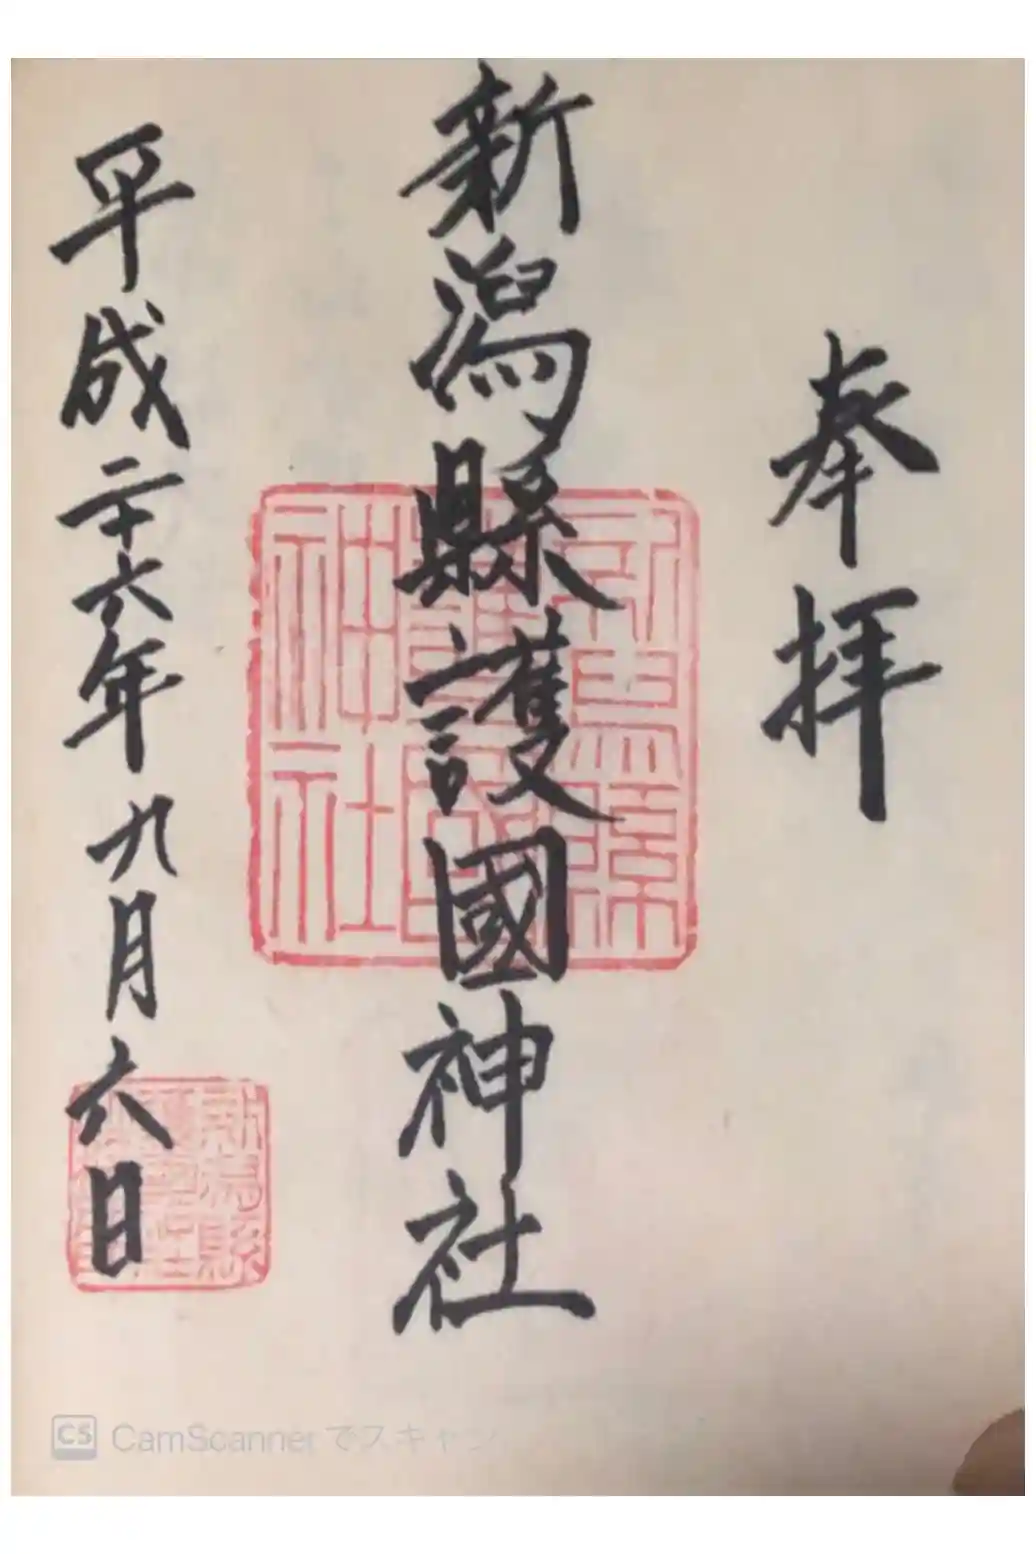 奉拝
新潟縣護國神社
平成二十六年九月六日
新潟縣
護國
神社
CS CamScannerでスキャン